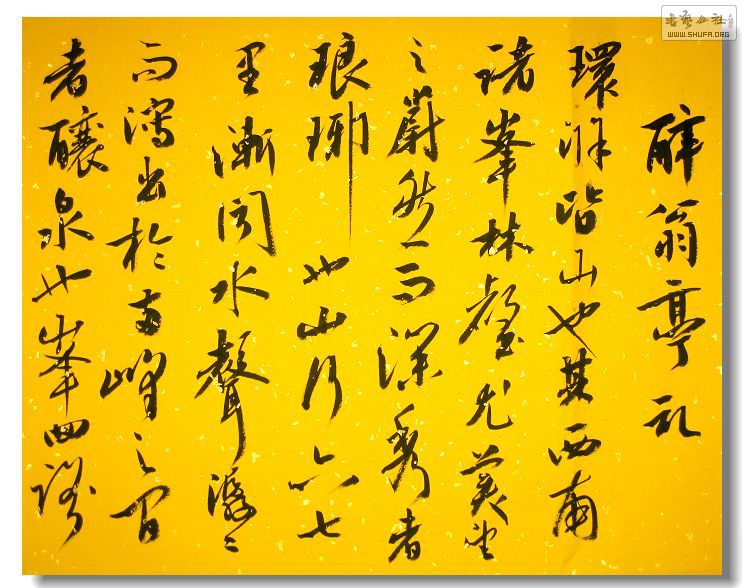 醉翁亭記
環滁皆山也其西南
諸峯林壑尤美望
之蔚然而深秀者
琅琊也山行六七
里漸聞水聲潺〻
而瀉出於兩峰之間
者釀泉也峯回路
书艺公社
WWW.SHUFA.ORG